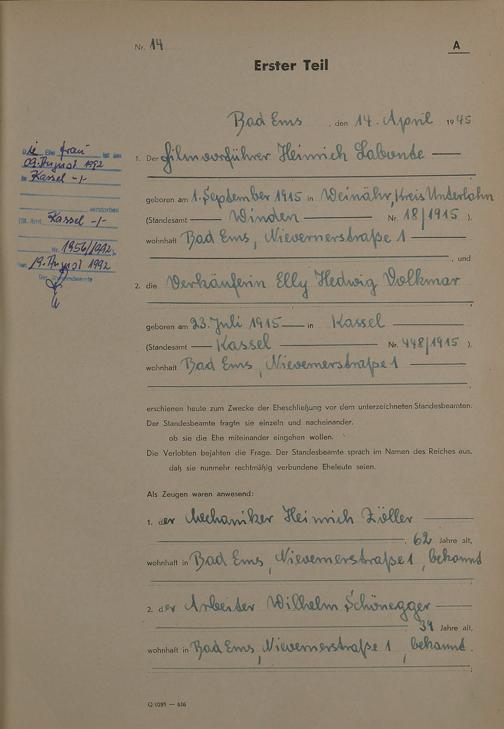 Nr. 14
A
Erster Teil
Bad Ems, den 14. April 1945
Die Ehefrau ist am
09. August 1992
in Kassel -/-
verstorben
(St. Amt Kassel -/-
Nr. 1956/1992
19. August 1992
Der Standesbeamte
1. Der Filmvorführer Heinrich Labonte
geboren am 1. September 1915 in Weinähr, Kreis Unterlahn
(Standesamt Winden Nr. 18/1915).
wohnhaft Bad Ems, Nievernerstraße 1
, und
2. die Verkäuferin Elly Hedwig Volkmar
geboren am 23. Juli 1915 in Kassel
(Standesamt Kassel Nr. 448/1915).
wohnhaft Bad Ems, Nievernerstraße 1
erschienen heute zum Zwecke der Eheschließung vor dem unterzeichneten Standesbeamten.
Der Standesbeamte fragte sie einzeln und nacheinander,
ob sie die Ehe miteinander eingehen wollen.
Die Verlobten bejahten die Frage. Der Standesbeamte sprach im Namen des Reiches aus,
daß sie nunmehr rechtmäßig verbundene Eheleute seien.
Als Zeugen waren anwesend:
1. der Mechaniker Heinrich Zöller
, 62 Jahre alt,
wohnhaft in Bad Ems, Nievernerstraße 1, bekannt
2. der Arbeiter Wilhelm Schönegger
39 Jahre alt,
wohnhaft in Bad Ems, Nievernerstraße 1, bekannt.